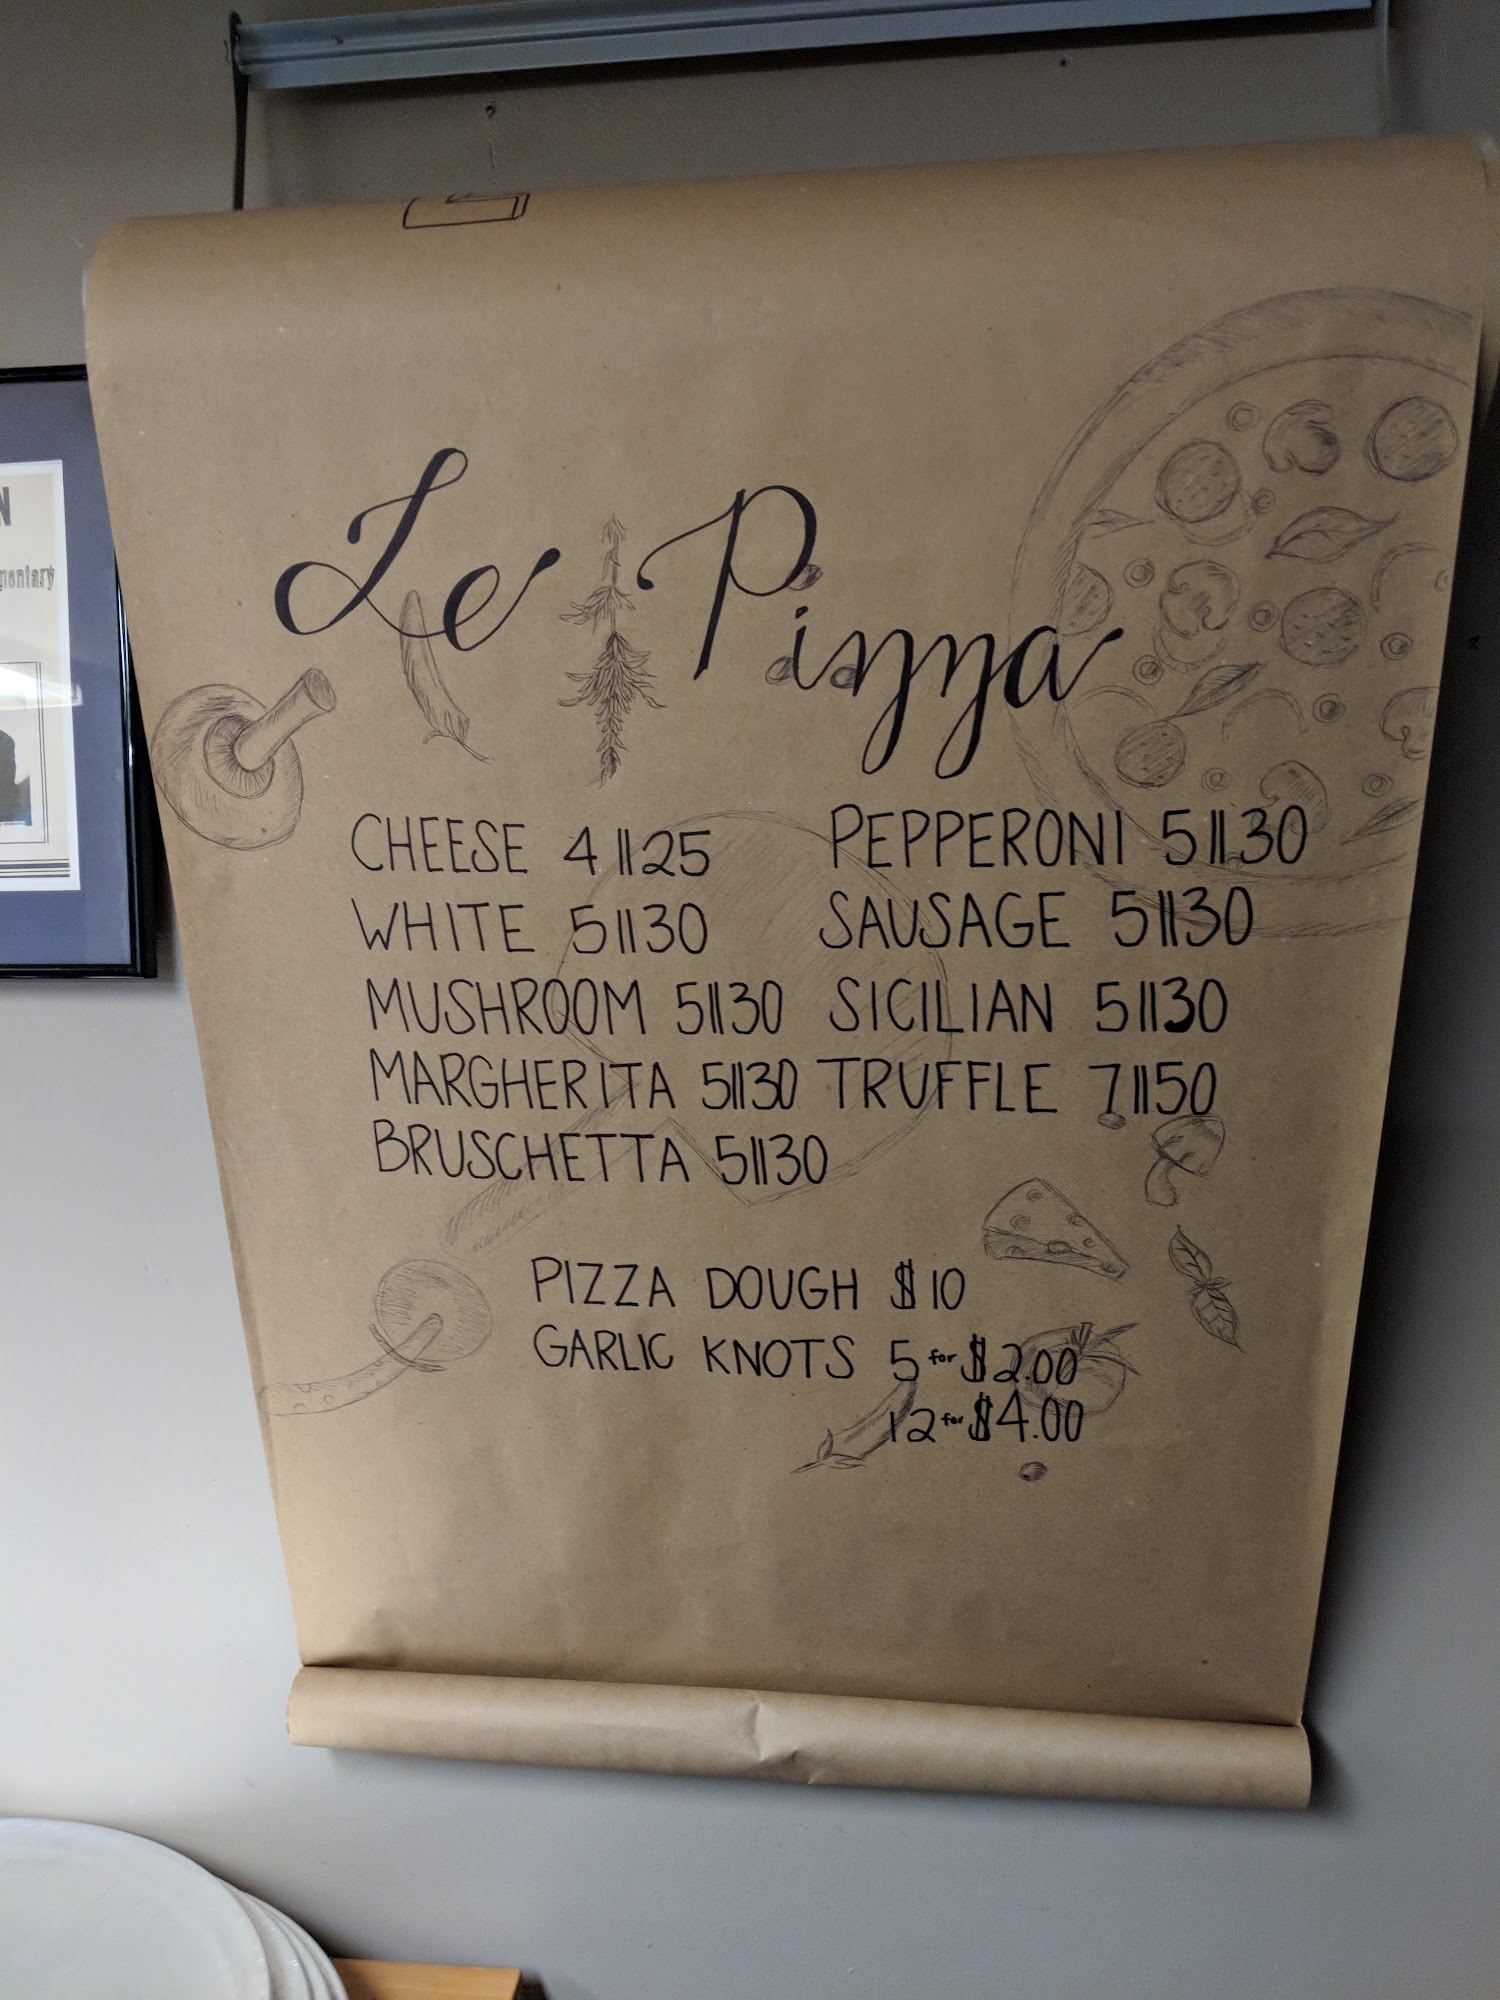 Le Pizza
CHEESE 4||25
WHITE 5||30
MUSHROOM 5||30
MARGHERITA 5||30
BRUSCHETTA 5||30
PEPPERONI 5||30
SAUSAGE 5||30
SICILIAN 5||30
TRUFFLE 7||50
PIZZA DOUGH $10
GARLIC KNOTS 5 for $2.00
12 for $4.00